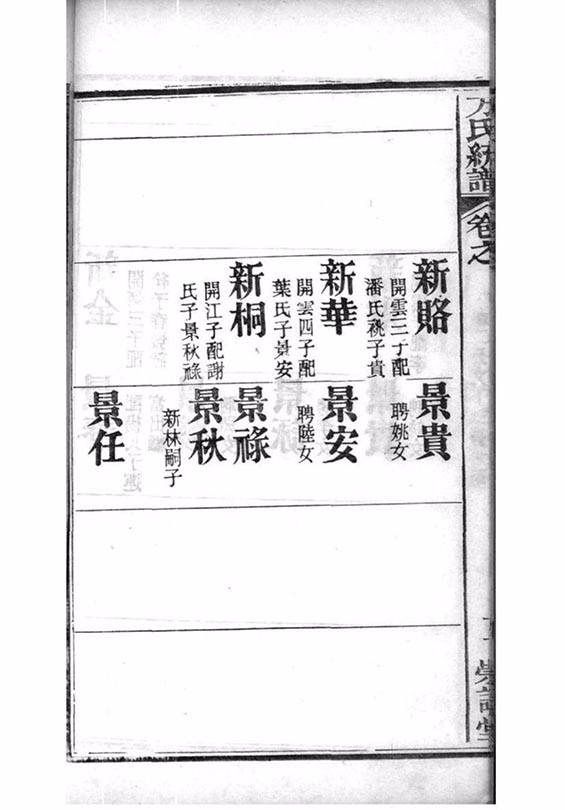 方氏統譜
卷之
新賂
開雲三子配
潘氏祧子貴
新華
開雲四子配
葉氏子景安
新桐
開江子配謝
氏子景秋祿
景貴
聘姚女
景安
聘陸女
景祿
景秋
新林嗣子
景任